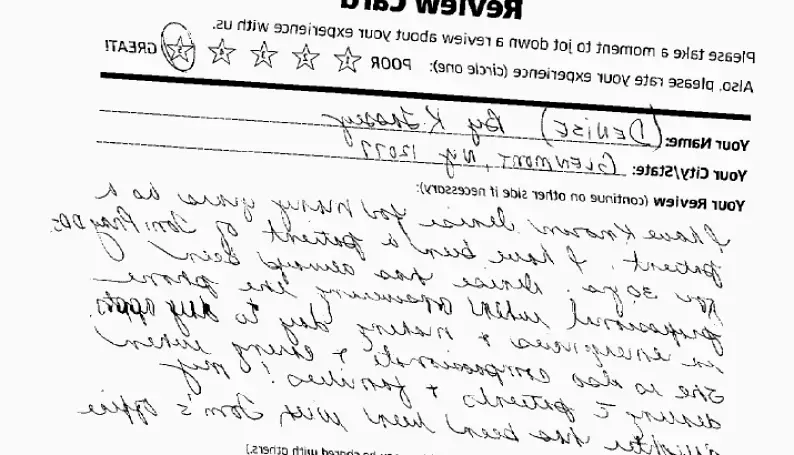 Review Card
Please take a moment to jot down a review about your experience with us.
Also, please rate your experience (circle one): POOR 1 2 3 4 5 GREAT!
Your Name: (DENISE) By K.
Your City/State: GLENMONT, NY 12077
Your Review (continue on other side if necessary):
I have known Denise for many years as a
patient. I have been a patient of Tom Pray DDS
for 30 yrs. Denise has always been
professional when answering the phone
in emergencies + making day to day appts.
She is also compassionate + caring when
dealing c̄ patients + families! My
daughter has been with Tom's office
be shared with others.)